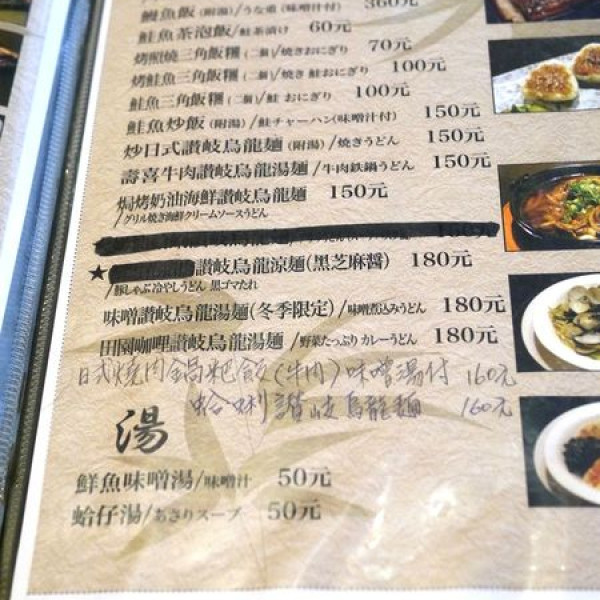 鰻魚飯(附湯)/うな重(味噌汁付) 360元
鮭魚茶泡飯/鮭茶漬け 60元
烤照燒三角飯糰(二個)/焼きおにぎり 70元
烤鮭魚三角飯糰(二個)/焼き鮭おにぎり 100元
鮭魚三角飯糰(二個)/鮭 おにぎり 100元
鮭魚炒飯(附湯)/鮭チャーハン(味噌汁付) 150元
炒日式讚岐烏龍麵(附湯)/焼きうどん 150元
壽喜牛肉讚岐烏龍湯麵/牛肉鉄鍋うどん 150元
焗烤奶油海鮮讚岐烏龍麵 150元
/グリル焼き海鮮クリームソースうどん
★讚岐烏龍涼麵(黑芝麻醬) 180元
/豚しゃぶ冷やしうどん 黒ゴマだれ
味噌讚岐烏龍湯麵(冬季限定)/味噌煮込みうどん 180元
田園咖哩讚岐烏龍湯麵/野菜たっぷりカレーうどん 180元
日式燒肉鍋粑飯(牛肉)味噌湯付 160元
蛤蜊讚岐烏龍麵 160元
湯
鮮魚味噌湯/味噌汁 50元
蛤仔湯/あさりスープ 50元